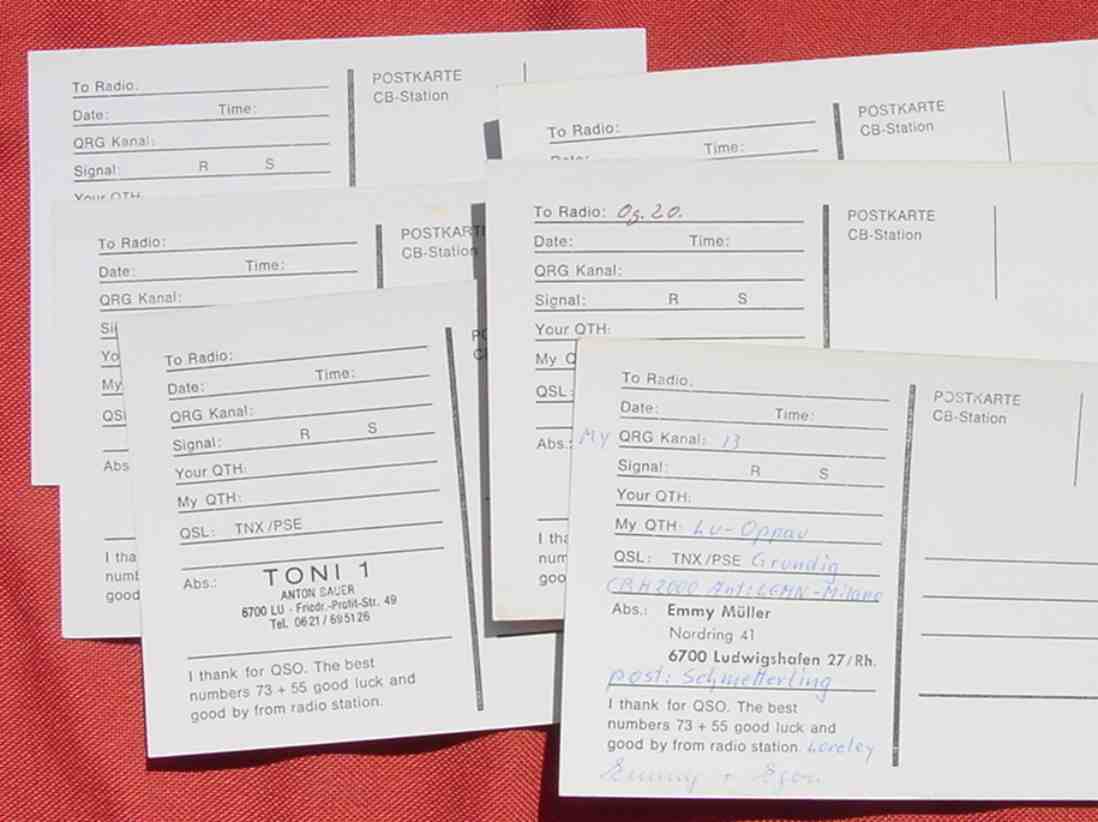 To Radio:
Date: Time:
QRG Kanal:
Signal: R S
Your QTH:
POSTKARTE
CB-Station
To Radio:
Date: Time:
POSTKARTE
CB-Station
To Radio:
Date: Time:
QRG Kanal:
Si
Yo
My
QSL
Abs
I tha
numb
good
POSTKART
CB-Station
To Radio: Og. 20.
Date: Time:
QRG Kanal:
Signal: R S
Your QTH:
My Q
QSL:
Abs.:
I tha
num
goo
POSTKARTE
CB-Station
To Radio:
Date: Time:
QRG Kanal:
Signal: R S
Your QTH:
My QTH:
QSL: TNX/PSE
Abs.: TONI 1
ANTON SAUER
6700 LU - Friedr.-Profit-Str. 49
Tel. 0621/695126
I thank for QSO. The best
numbers 73 + 55 good luck and
good by from radio station.
PO
C
To Radio:
Date: Time:
My QRG Kanal: 13
Signal: R S
Your QTH:
My QTH: Lu-Oppau
QSL: TNX/PSE Grundig
Abs.: Emmy Müller
Nordring 41
6700 Ludwigshafen 27/Rh.
post: Schmetterling
I thank for QSO. The best
numbers 73 + 55 good luck and
good by from radio station. Loreley
Emmy + Egon
POSTKARTE
CB-Station